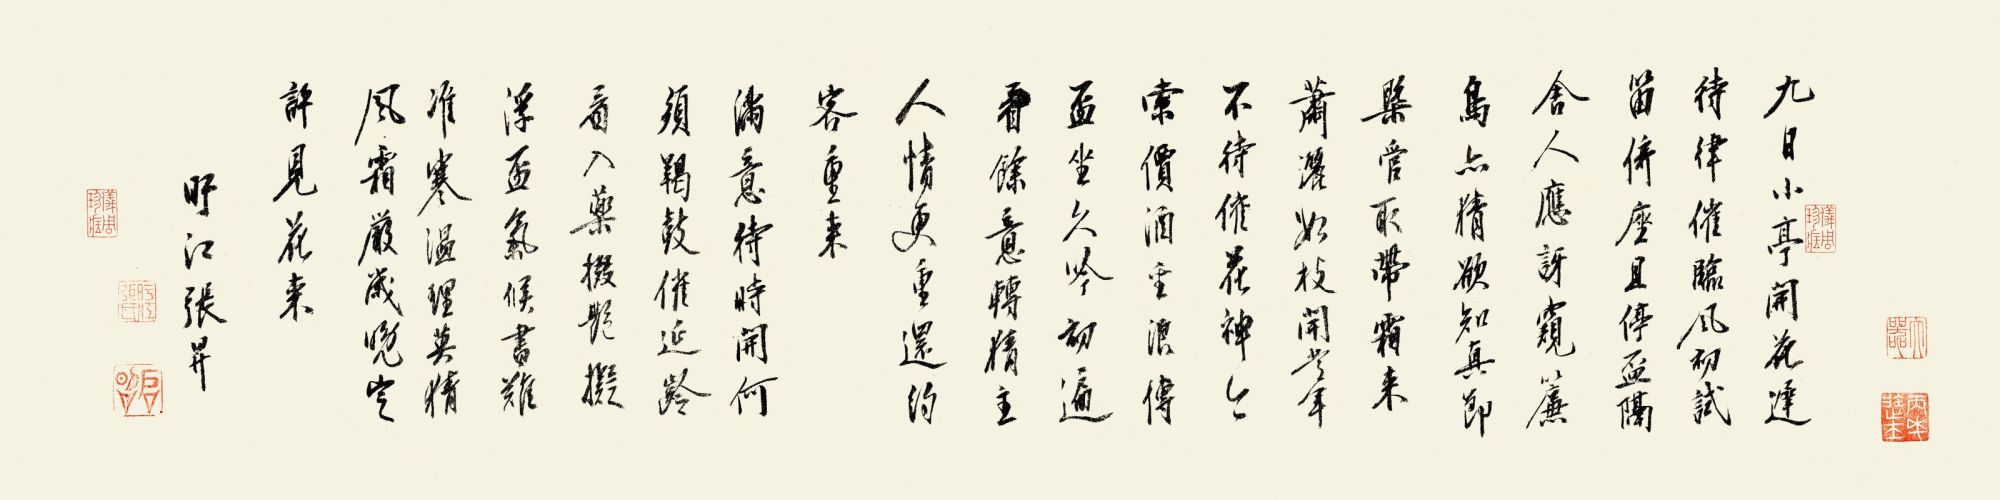 九日小亭開花遲
待律催臨風初試
笛併座且停盃隔
舍人應訝窺簾
鳥亦猜欲知真節
槩管取帶霜来
蕭灑數枝開當年
不待催花神今
索價酒聖浪傳
盃坐久吟初遍
看餘意轉猜主
人情更重還約
客重来
滿意待時開何
須羯鼓催延齡
看入藥掇艷擬
浮盃氣候書難
准寒溫理莫猜
風霜嚴歲晚定
許見花来
盱江張昇